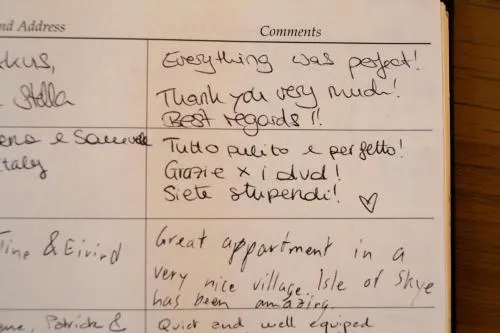 nd Address
Comments
kus,
Stella
Everything was perfect!
Thank you very much!
Best regards !!
e Samuele
Italy
Tutto pulito e perfetto!
Grazie x i dvd!
Siete stupendi! ♡
ine & Eivind
Great appartment in a
very nice village. Isle of Skye
has been amazing.
Patrick &
Quiet and well equiped